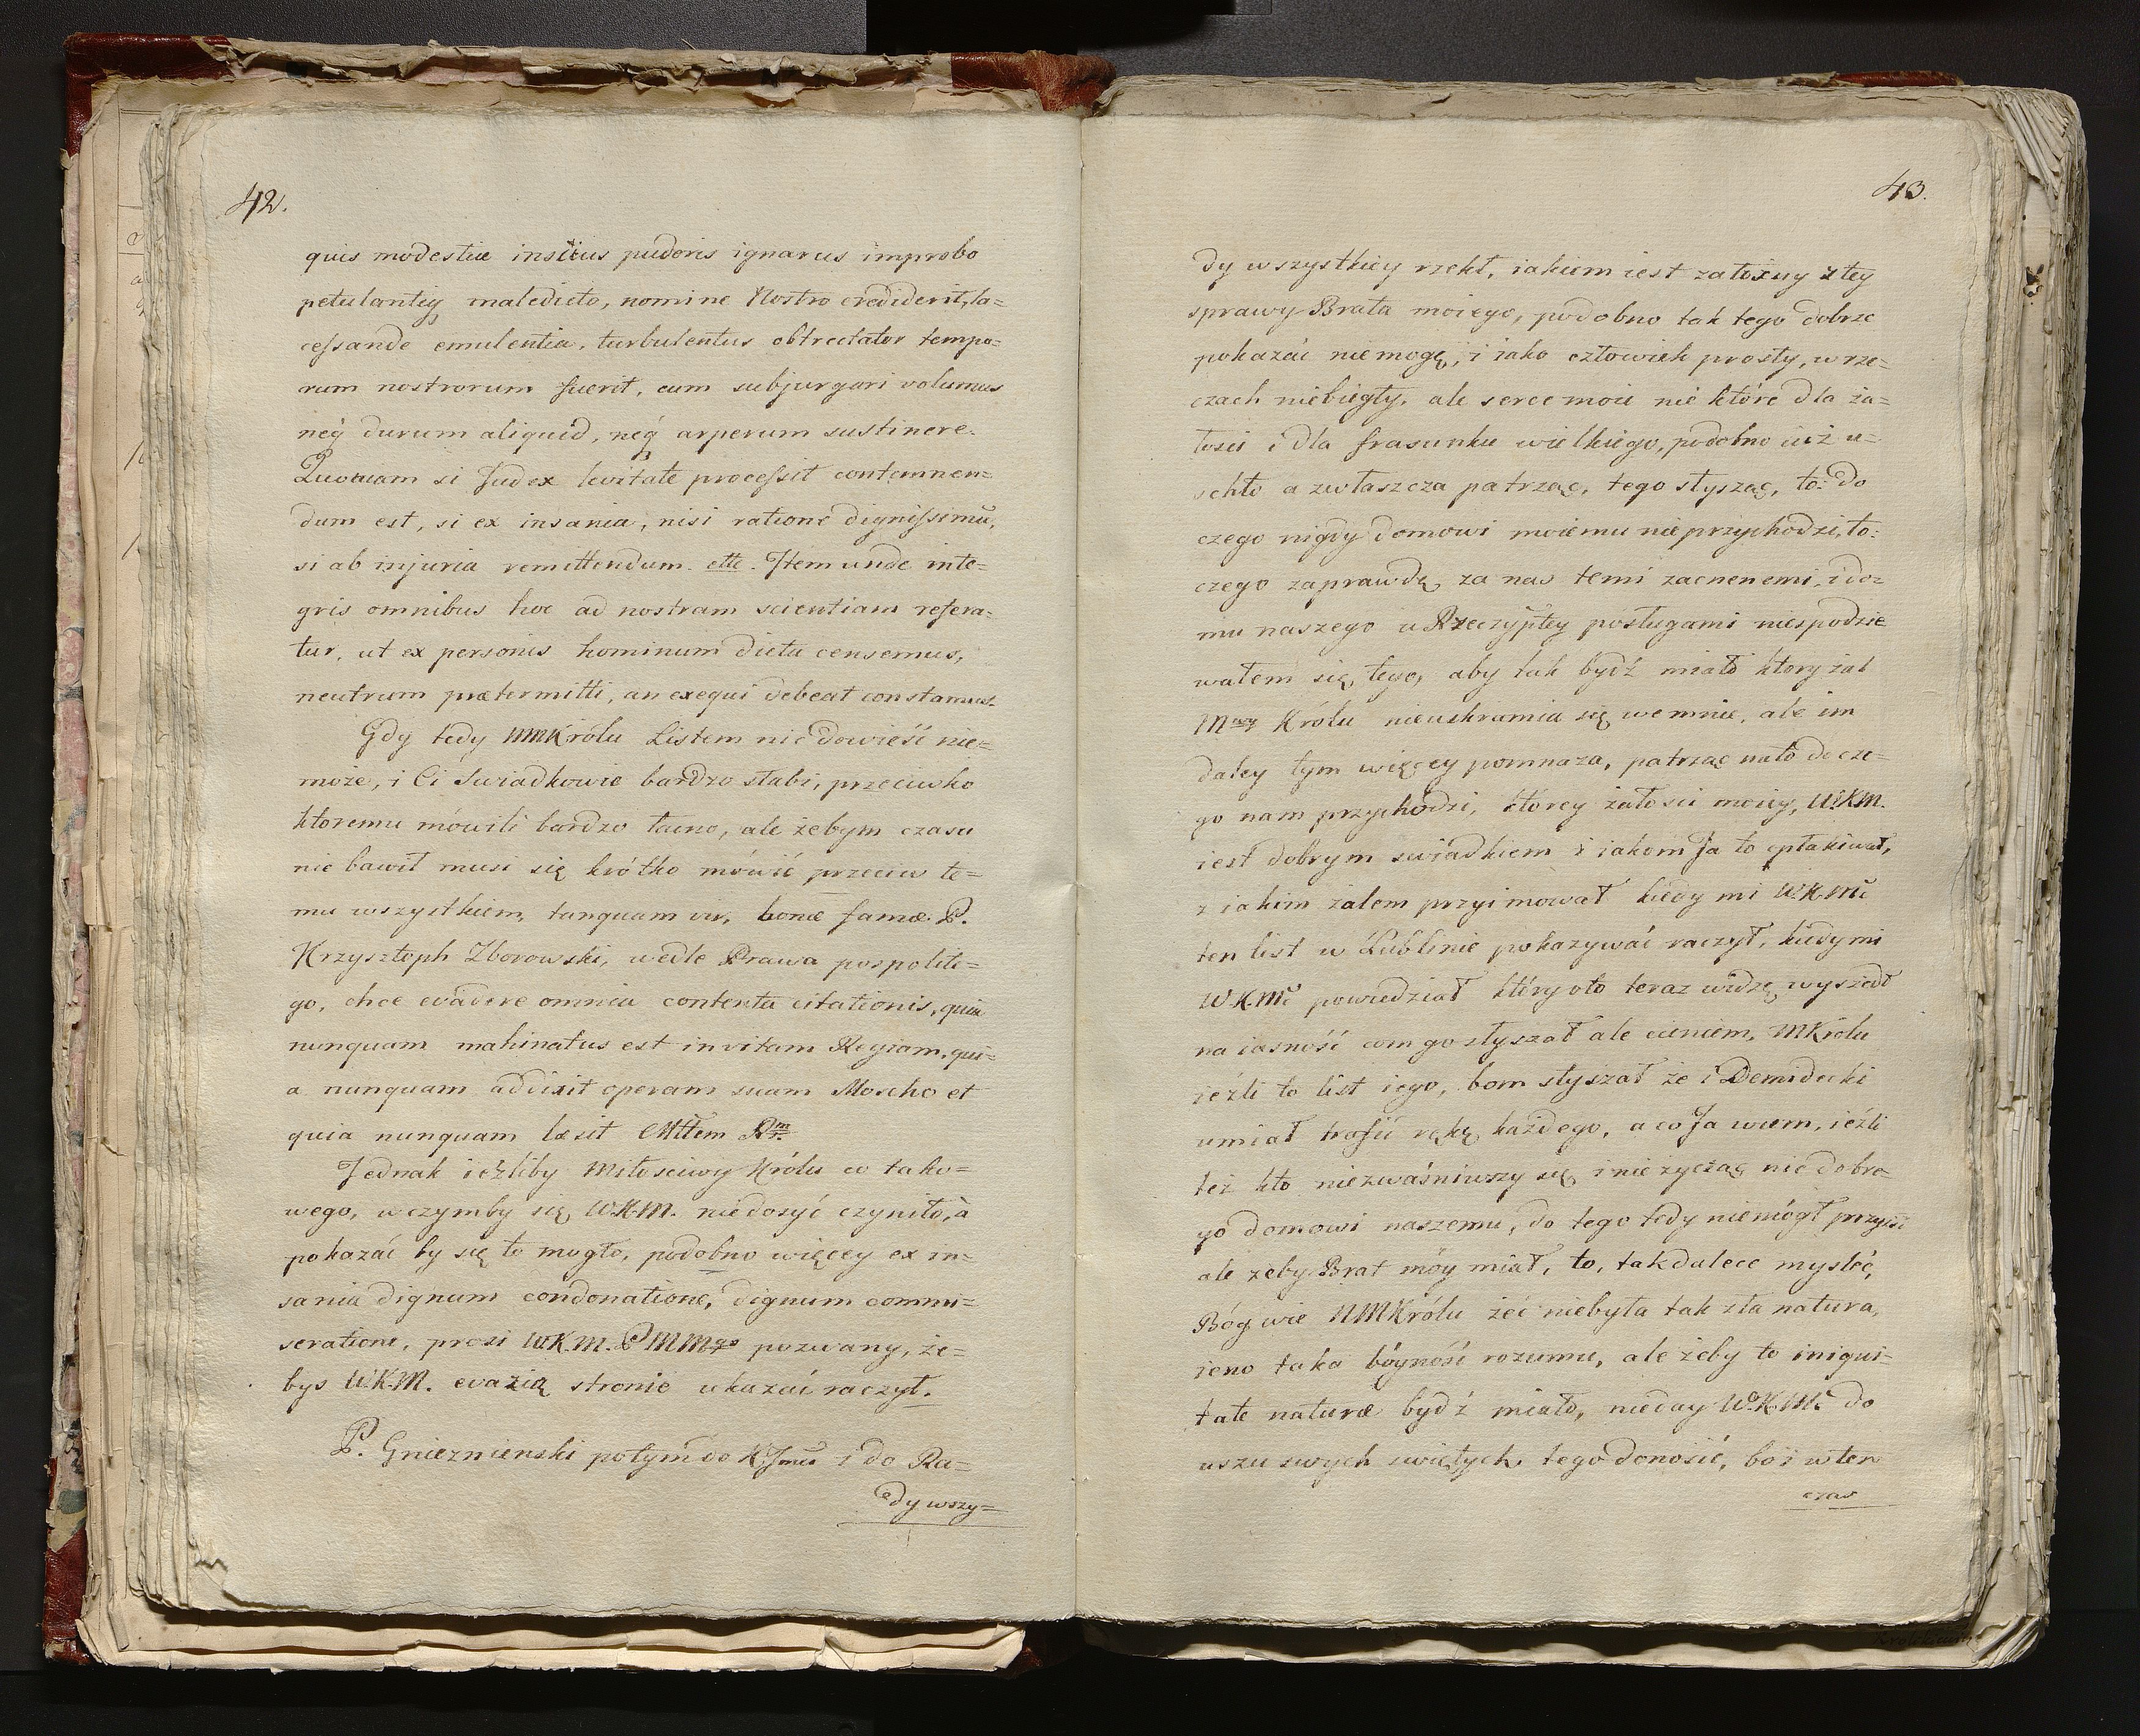 42.
quis modestiæ inscius pudoris ignarus improbo
petulantiq maledicto, nomine Nostro crediderit, la=
cessande emulentia, turbulentus obtrectator tempo=
rum nostrorum fuerit, eum subjurgari volumus
neq durum aliquid, neq arperum sustinere.
Quoniam si Judex levitate processit contemnen=
dum est, si ex insania, nisi ratione dignissimũ,
si ab injuria remittendum. ette. Item unde inte=
gris omnibus hoc ad nostram scientiam refera=
tur, ut ex personis hominum dicta censemus,
neutrum prætermitti, an exequi debeat constamus
Gdy tedy MMKrólu Listem nie dowieść nie=
może, i Ci Swiadkowie bardzo słabi, przeciwko
ktoremu mówili bardzo łacno, ale żebym czasu
nie bawił musi się krótko mówić przeciw te=
mu wszystkiem, tanquam vir, bonæ famæ P.
Krzysztoph Zborowski, wedle Prawa pospolite=
go, chce evadere omnia contenta citationis, quia
nunquam mahinatus est in vitam Regiam, qui=
a nunquam addixit operam suam Moscho et
quia nunquam læsit Mttem Rm.
Jednak ieżliby Miłosciwy Królu co tako=
wego, w czymby się W.K.M. niedosyć czyniło, à
pokazać by się to mogło, podobno więcey ex in=
sania dignum condonatione, dignum commi=
seratione, prosi W.K.M. P M Mgo pozwany, że=
bys W.K.M. evazią stronie ukazać raczył.
P. Gniezninski potym do K. Jmci i do Ra=
dy wszy=
43.
dy wszystkiey rzekł, iakiem iest załoiny z tey
sprawy Brata moiego, podobno tak tego dobrze
pokazać nie mogę, i iako człowiek prosty, w rze=
czach niebiegły, ale serce moie nie które dla ża=
łosci i dla frasunku wielkiego, podobno iuż u=
schło a zwłaszcza patrząc, tego słysząc, to: do
czego nigdy domowi moiemu nie przychodzi, to:
czego zaprawdę za nas temi zacnenemi, i do=
mu naszego u Rzeczyptey posługami niespodzie
wałem się, tego, aby tak bydź miało ktory żal
Mwy Królu nieuskramia się we mnie, ale im
daley tym więcey pomnaza, patrząc na to do cze=
go nam przychodzi, którey żałosci moiey, W.K.M.
iest dobrym swiadkiem i iakom Ja to opłakiwał,
z iakim żalem przyimował kiedy mi W.K.Mć
ten list w Lublinie pokazywać raczył, kiedy mi
W.K.Mć powiedział który oto teraz widzę wyszedł
na iasność com go słyszał ale cieniem, MKrolu
ieźli to list iego, bom słyszał że i Demidecki
umiał trafić rękę każdego, a co Ja wiem, ieźli
też kto niezwaśniwszy się i nie życząc nic dobre=
go domowi naszemu, do tego tedy niemógł przyść
ale żeby Brat móy miał, to, takdalece mysleć,
Bóg wie NMKrólu żeć niebyła tak zła natura,
ieno taka bóyność rozumu, ale żeby to iniqui=
tate naturæ bydź miało, nieday W.K.Mć do
uszu swych swiętych tego donosić, bo i w ten
czas